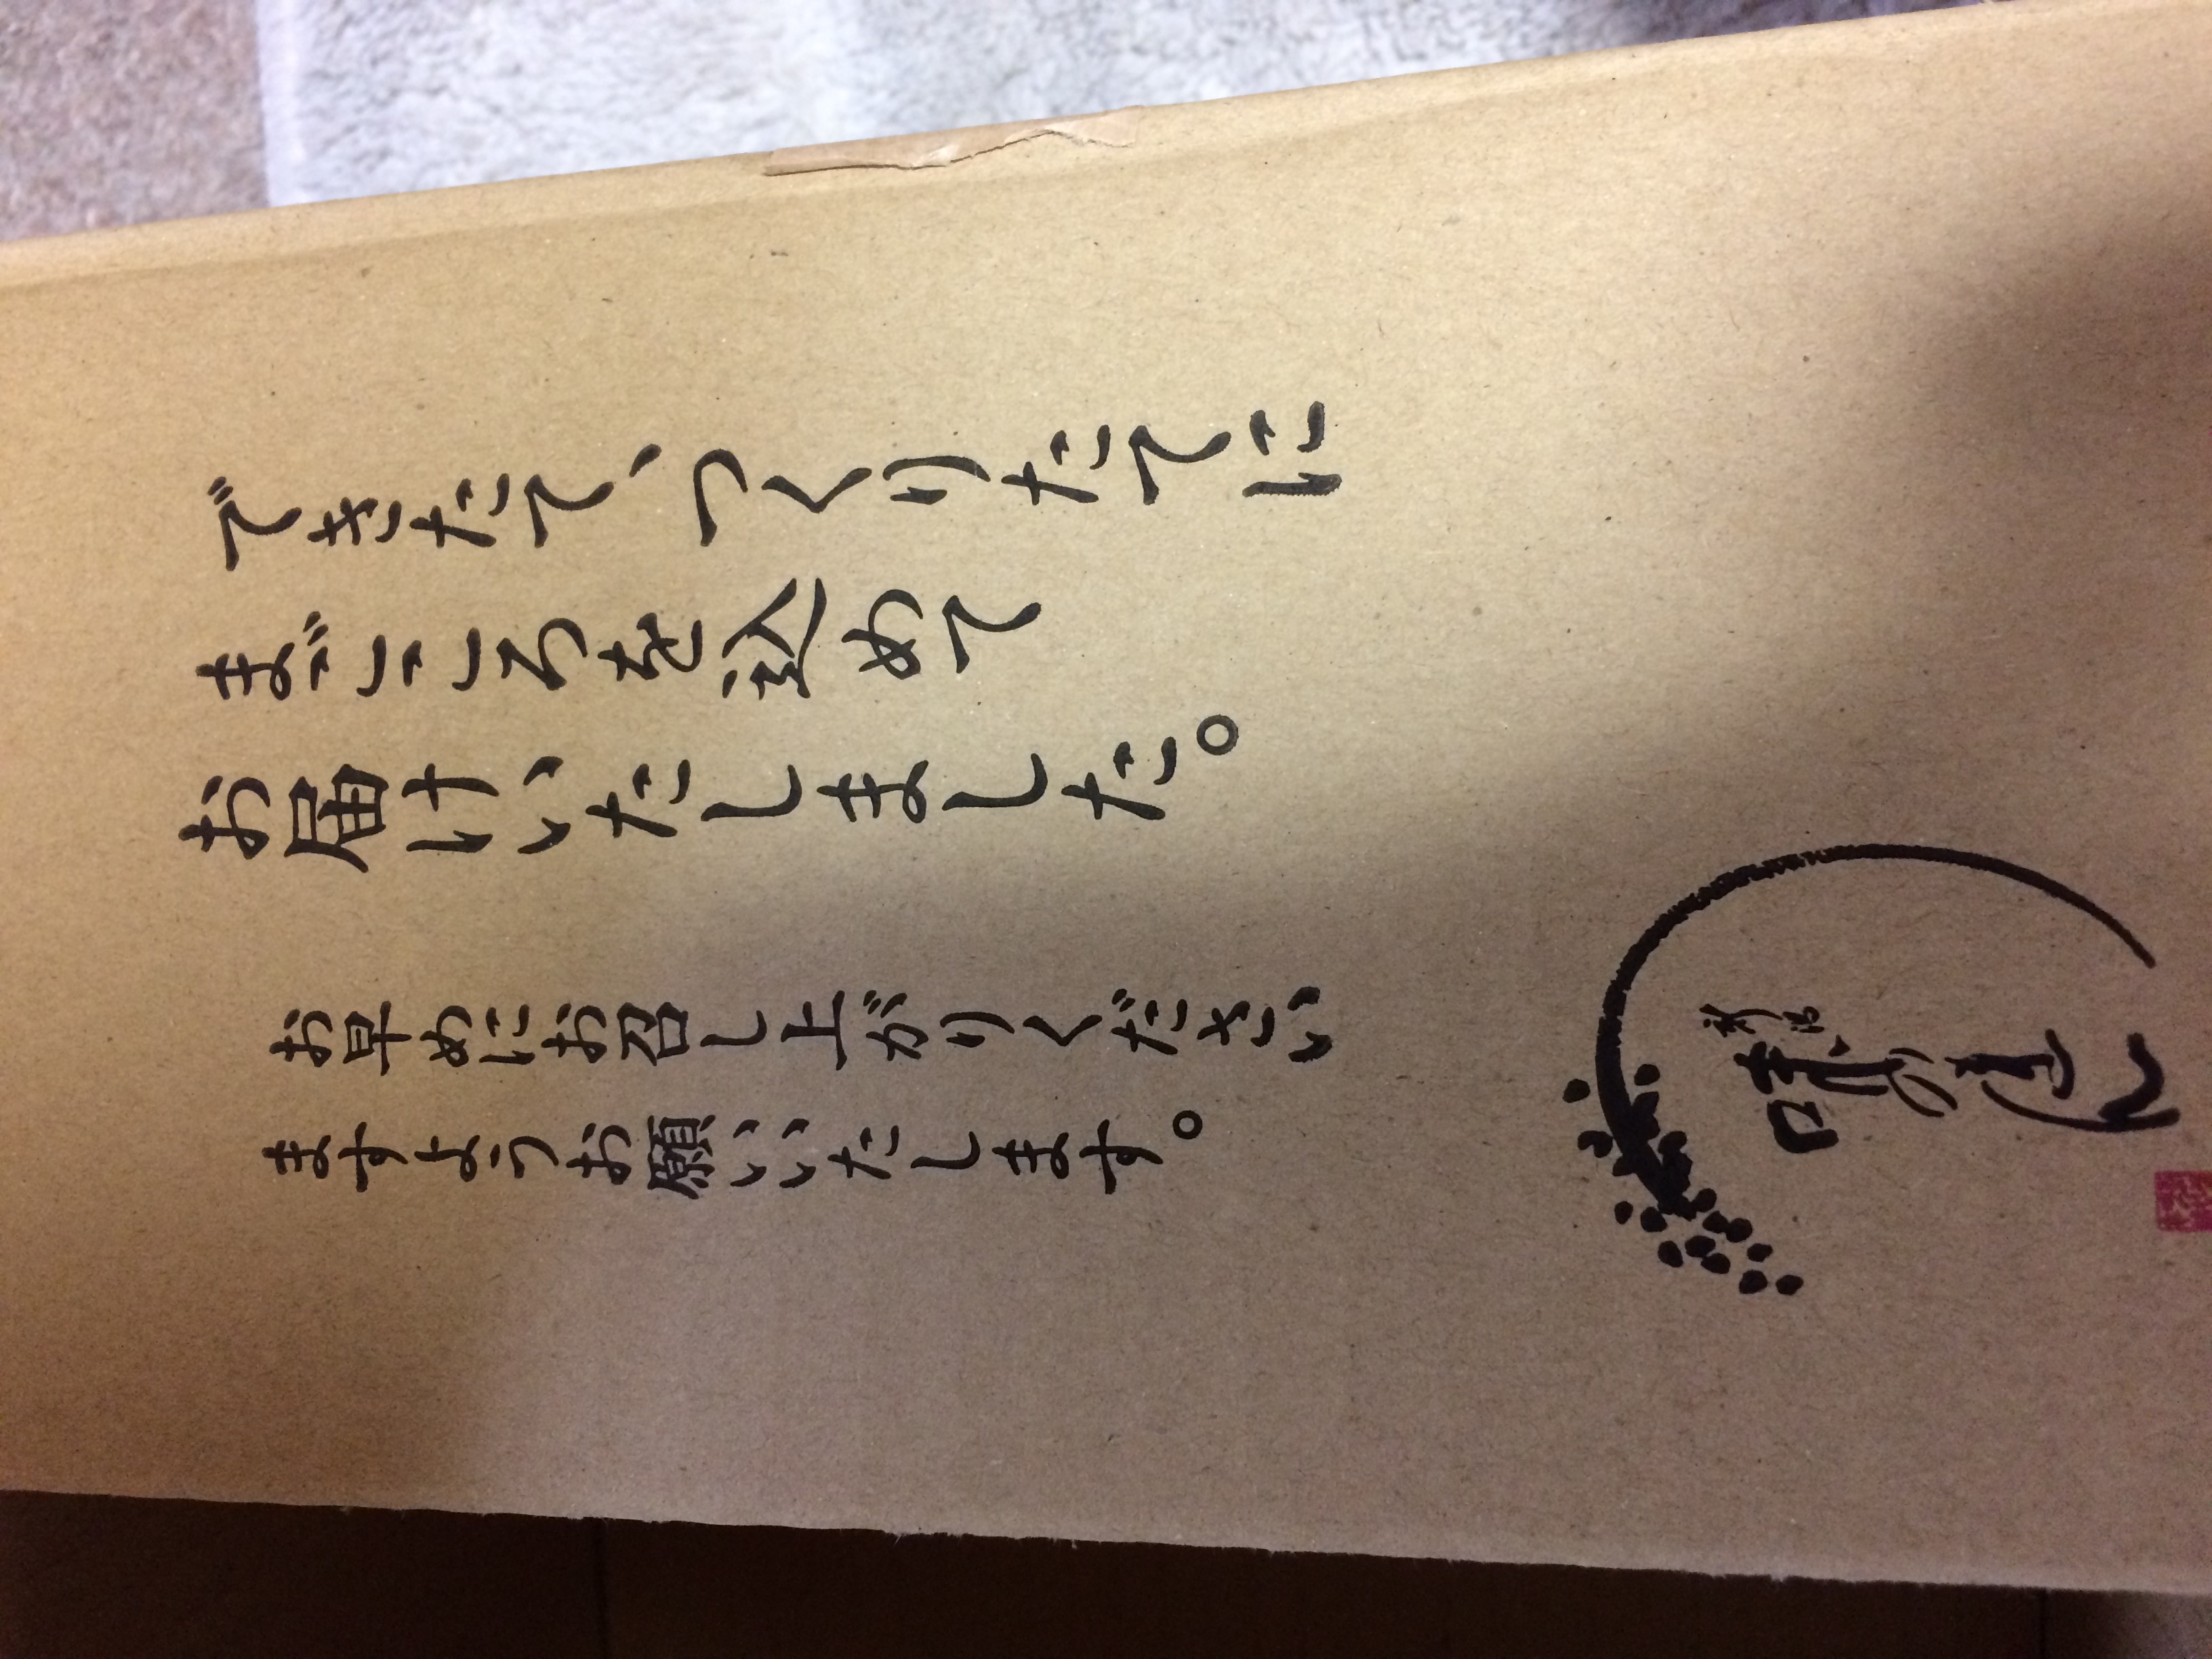 できたて、つくりたてに
まごころを込めて
お届けいたしました。
お早めにお召し上がりください
ますようお願いいたします。